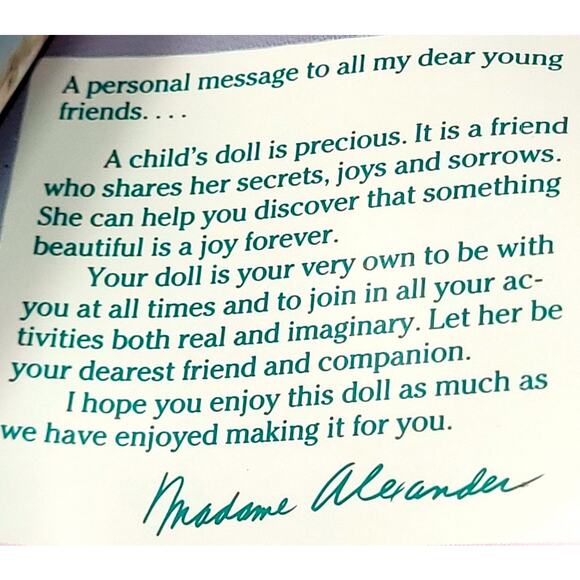 A personal message to all my dear young
friends. . . .
A child's doll is precious. It is a friend
who shares her secrets, joys and sorrows.
She can help you discover that something
beautiful is a joy forever.
Your doll is your very own to be with
you at all times and to join in all your ac-
tivities both real and imaginary. Let her be
your dearest friend and companion.
I hope you enjoy this doll as much as
we have enjoyed making it for you.
Madame Alexander